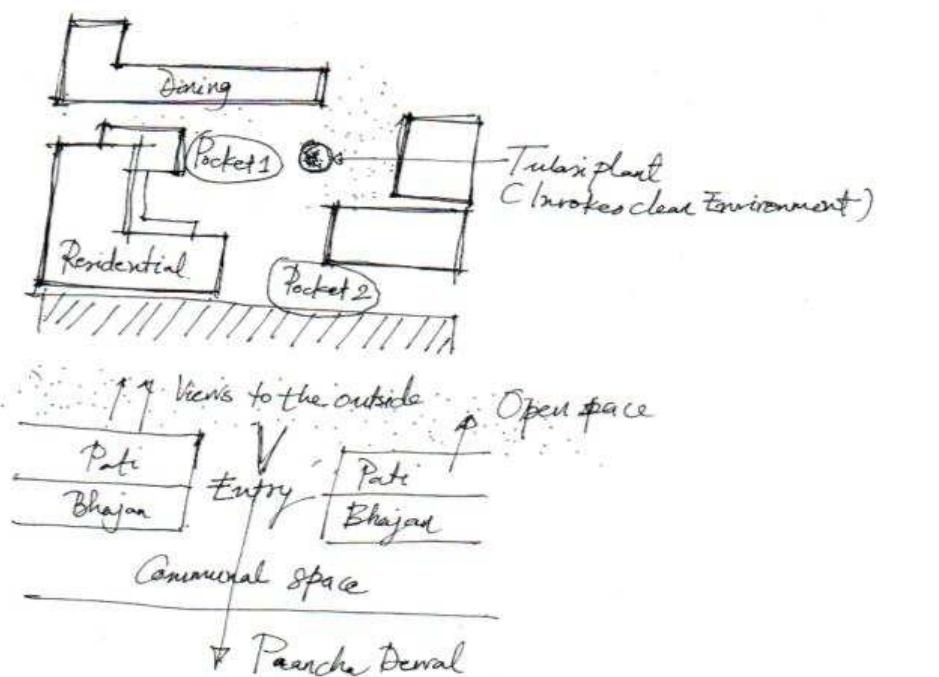 Dining
Pocket 1
Tulasi plant
(Invokes clean Environment)
Residential
Pocket 2
Views to the outside
Open space
Pati
Bhajan
Entry
Pati
Bhajan
Communal space
Paancha Dewal